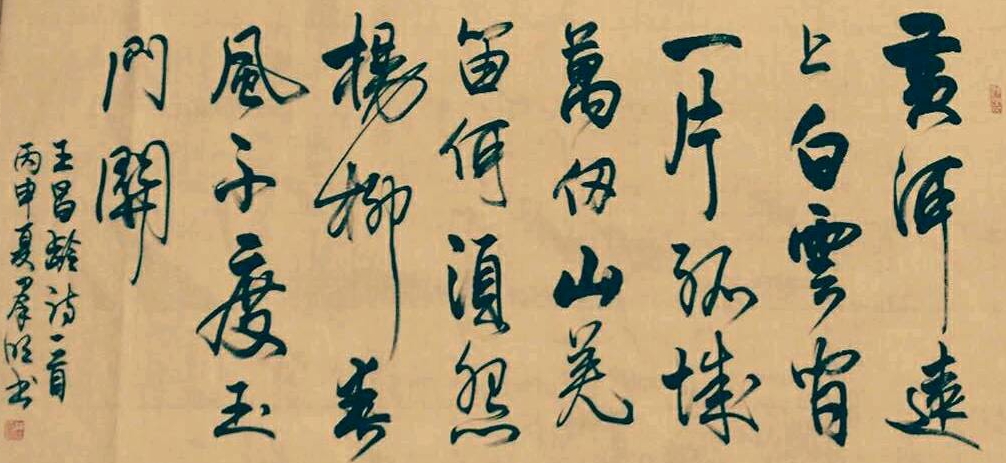 黃河遠
上白雲間
一片孤城
萬仞山羌
笛何須怨
楊柳春
風不度玉
門關
王昌齡诗一首
丙申夏羣书